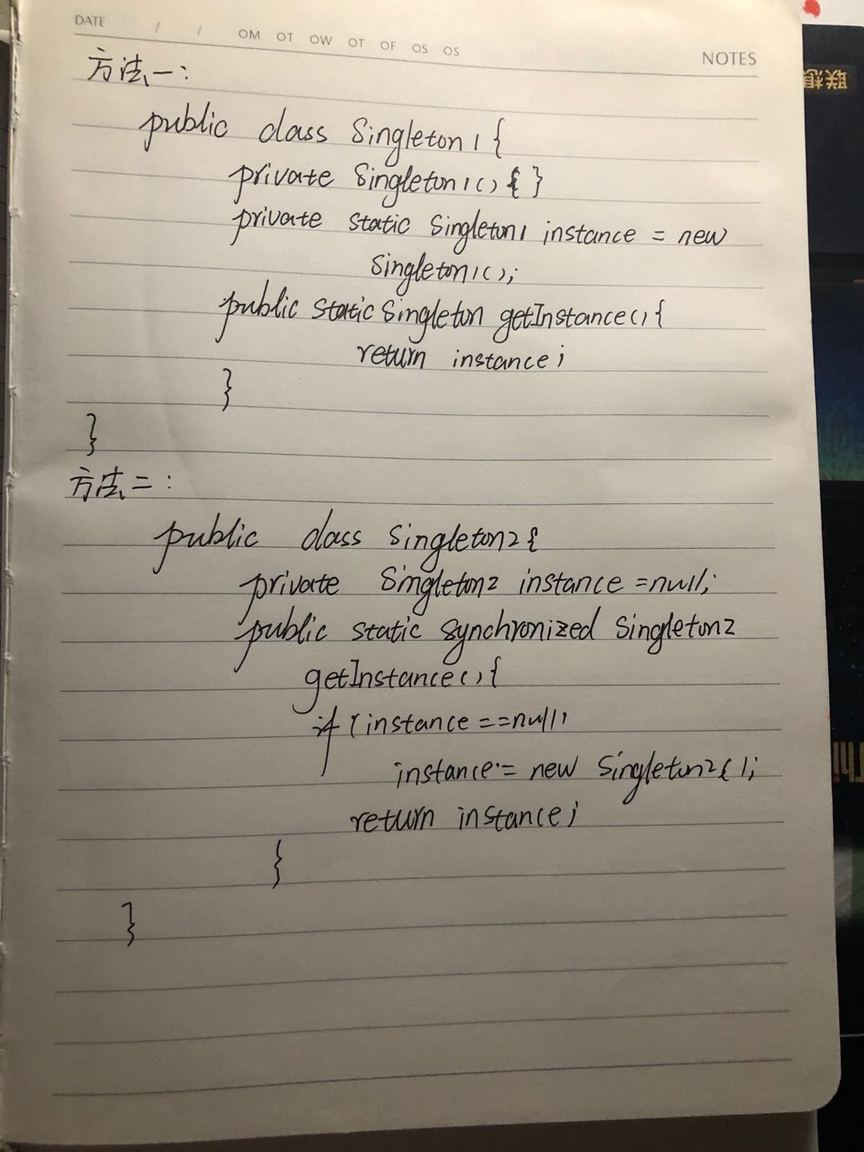 DATE / / OM OT OW OT OF OS OS
NOTES
方法一:
public class Singleton1{
private Singleton1(){}
private static Singleton1 instance = new
Singleton1();
public static Singleton getInstance(){
return instance;
}
}
方法二:
public class Singleton2{
private Singleton2 instance =null;
public static synchronized Singleton2
getInstance(){
if (instance ==null)
instance = new Singleton2();
return instance;
}
}
联想